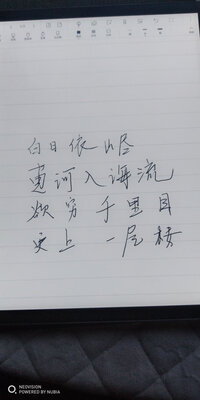 白日依山尽
黄河入海流
欲穷千里目
更上一层楼
NEOVISION
POWERED BY NUBIA